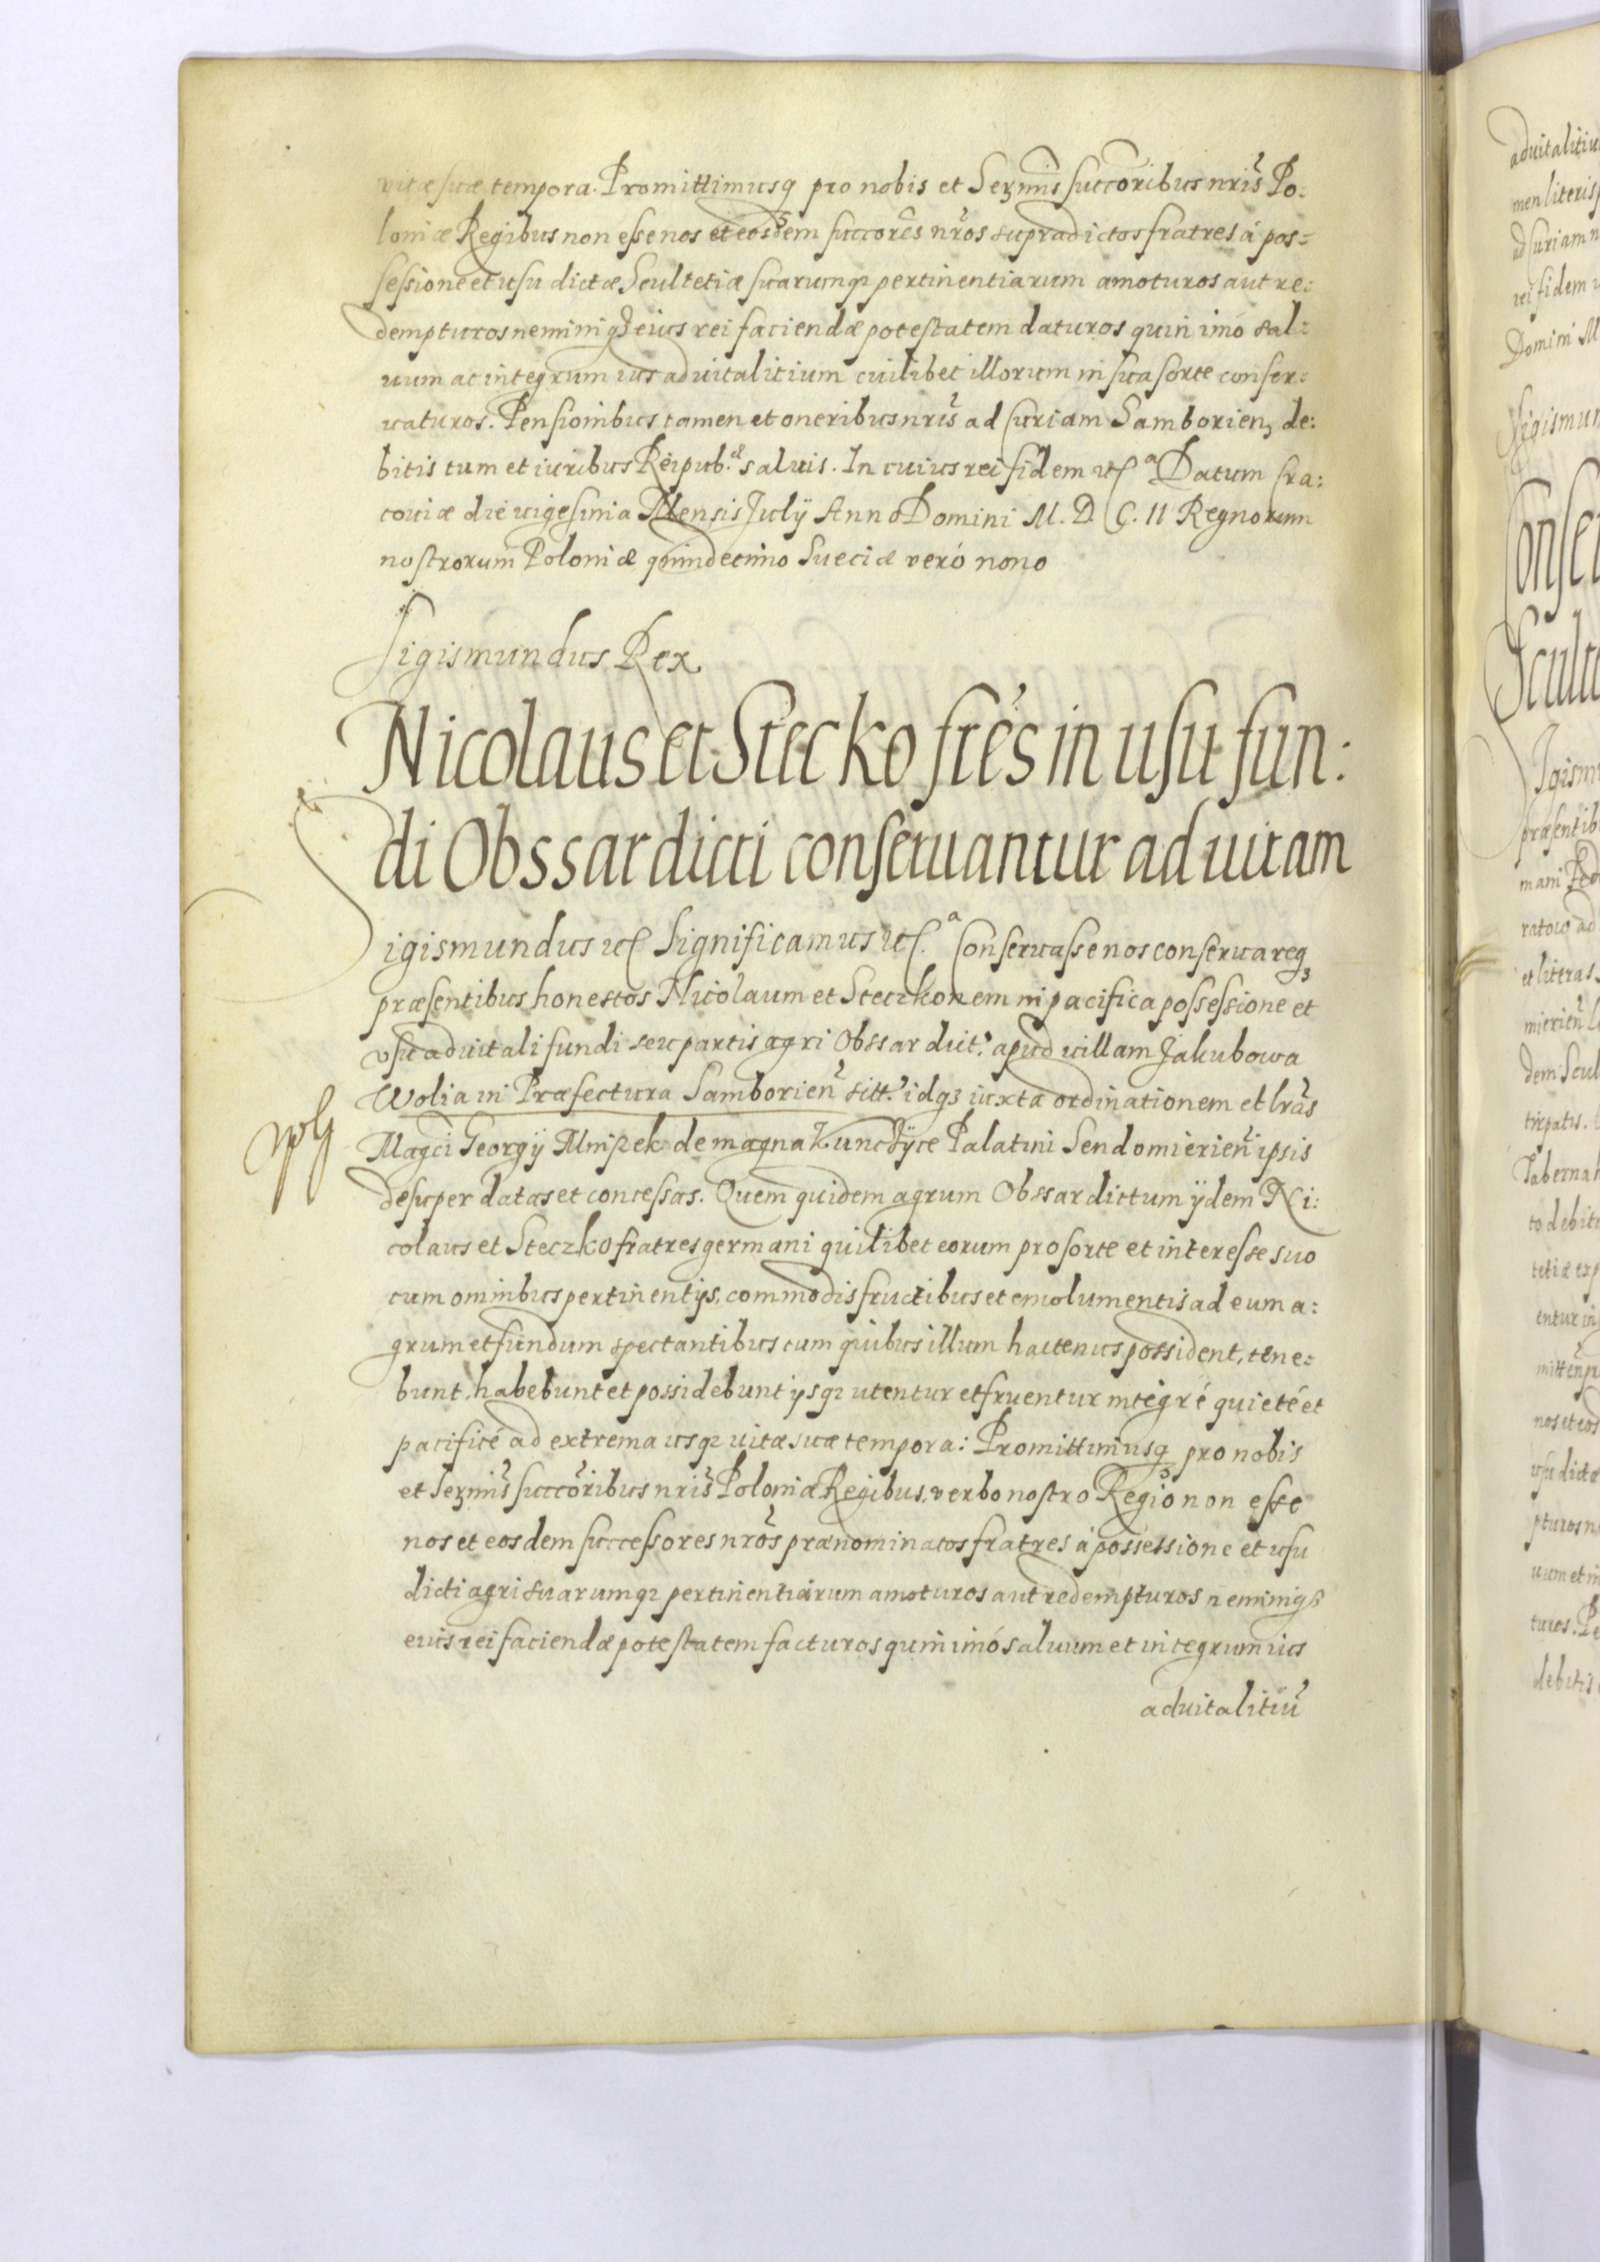 vitæ suæ tempora. Promittimusq pro nobis et Sermis succoribus nris Po:
loniæ Regibus non esse nos et eosdem succores nros supradictos fratres á pos:
sessione et usu dictæ Scultetiæ suarumq pertinentiarum amoturos aut re:
dempturos neminiq eius rei faciendæ potestatem daturos quin imó sal:
uum ac integrum ius aduitalitium cuilibet illorum in sua sorte conser:
uaturos. Pensionibus tamen et oneribus nris ad Curiam Samborien, de:
bitis tum et iuribus Reipub. saluis. In cuius rei fidem etc Datum Cra:
couiæ die uigesima Mensis July Anno Domini M. D. C. II Regnorum
nostrorum Poloniæ quindecimo Sueciæ veró nono
Sigismundus Rex
Nicolaus et Stecko frés in usu fun:
di Obssar dicti conseruantur ad uitam
Sigismundus etc Significamus etc. Conseruasse nos conseruareq
præsentibus honestos Nicolaum et Steczkonem in pacifica possessione et
usu aduitali fundi seu partis agri Obssar dict. apud uillam Jakubowa
Wolia in Præfectura Samborien sitt. idq iuxta ordinationem et lras
Magci Georgÿ Mniszek de magna Kunczÿce Palatini Sendomierien ipsis
desuper datas et concessas. Quem quidem agrum Obssar dictum ÿdem Ni:
colaus et Steczko fratres germani quilibet eorum pro sorte et interesse suo
cum omnibus pertinentÿs, commodis fructibus et emolumentis ad eum a:
grum et fundum spectantibus cum quibus illum hactenus possident, tene:
bunt, habebunt et possidebunt ysq utentur et fruentur integré quieté et
pacificé ad extrema usq uitæ suæ tempora: Promittimusq pro nobis
et Sermis succoribus nris Poloniæ Regibus, verbo nostro Regio non esse
nos et eosdem successores nros prænominatos fratres á possessione et usu
dicti agri suarumq pertinentiarum amoturos aut redempturos neminiq
eius rei faciendæ potestatem facturos quin imó saluum et integrum ius
aduitalitiu